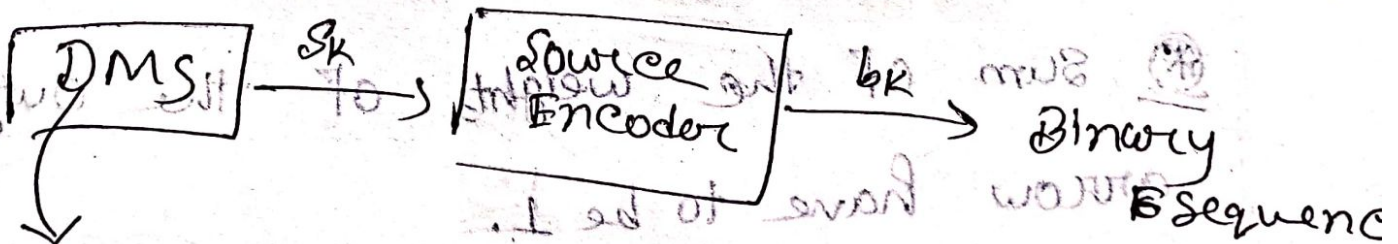 DMS
Sk
Source
Encoder
bk
Binary
Sequenc